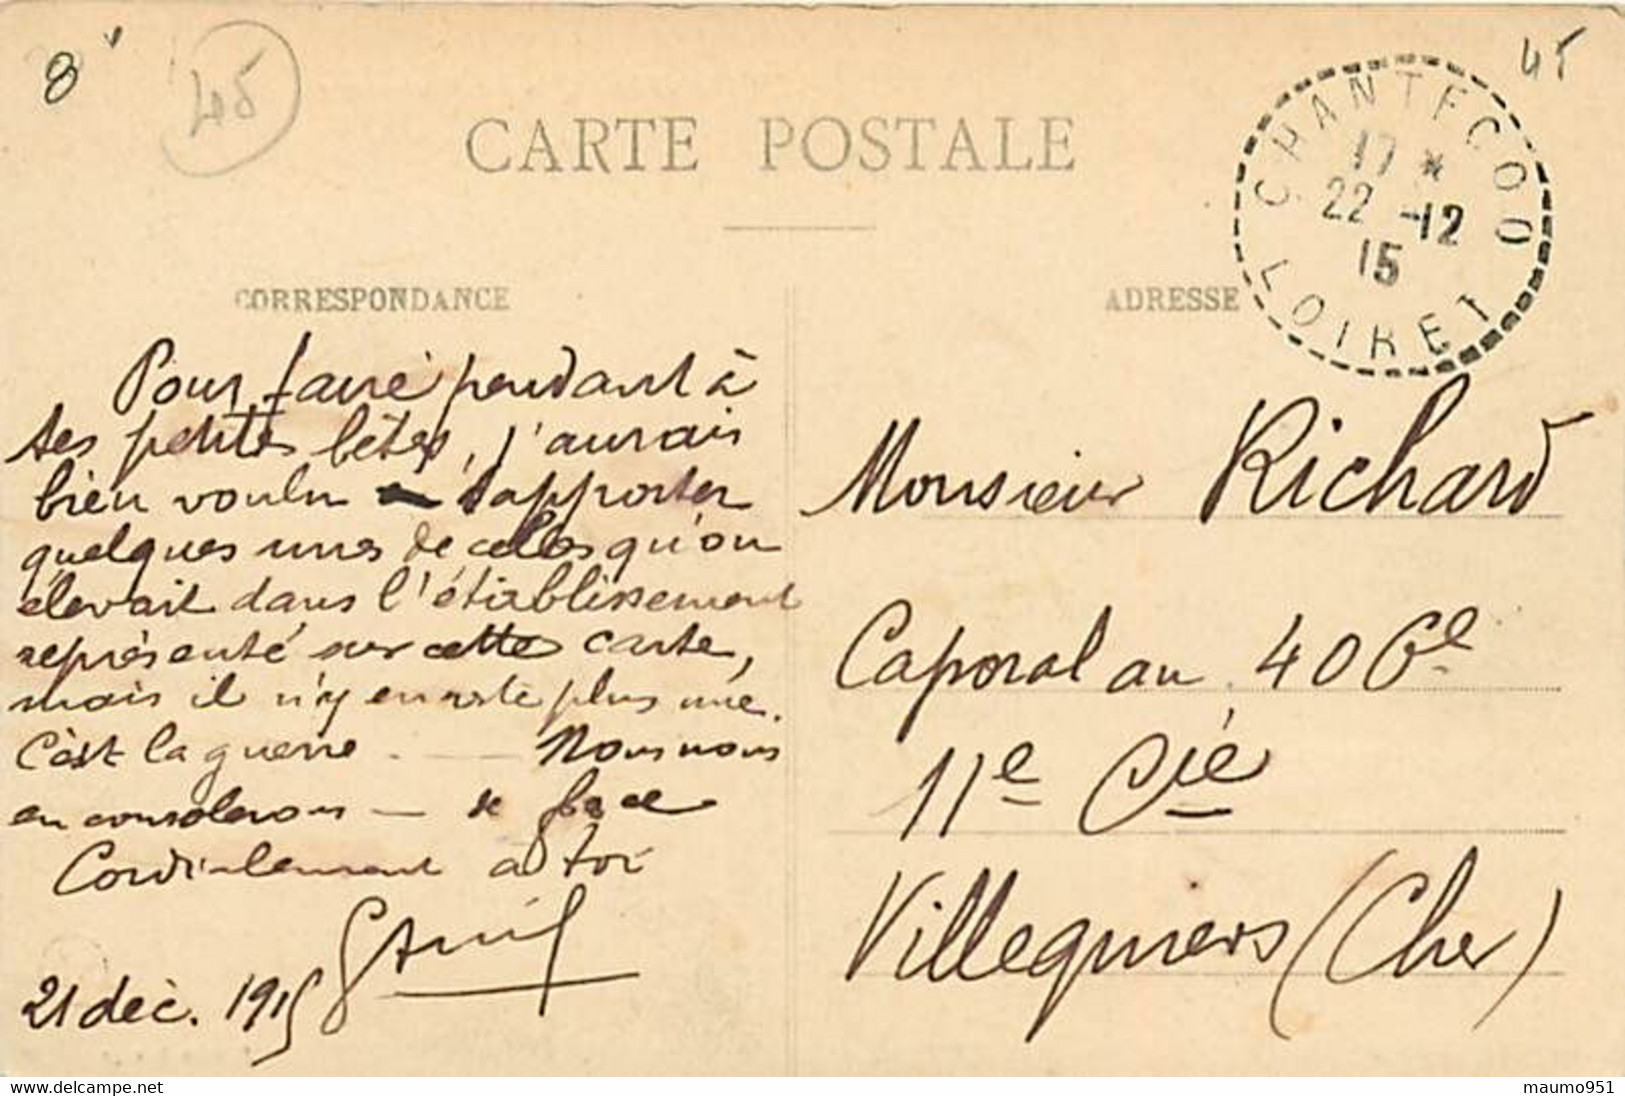 8
45
45
CARTE POSTALE
CHANTECOQ
17 *
22 -12
15
LOIRET
CORRESPONDANCE
ADRESSE
Pour faire pendant à
tes petites bêtes, j'aurais
bien voulu t'apporter
quelques unes de celles qu'on
élevait dans l'établissement
représenté sur cette carte,
mais il n'y en reste plus une.
C'est la guerre. — Nous nous
en consolerons —
Cordialement à toi
21 déc. 1915
Monsieur Richard
Caporal au 406e
11e Cie
Villequiers (Cher)
www.delcampe.net
maumo951